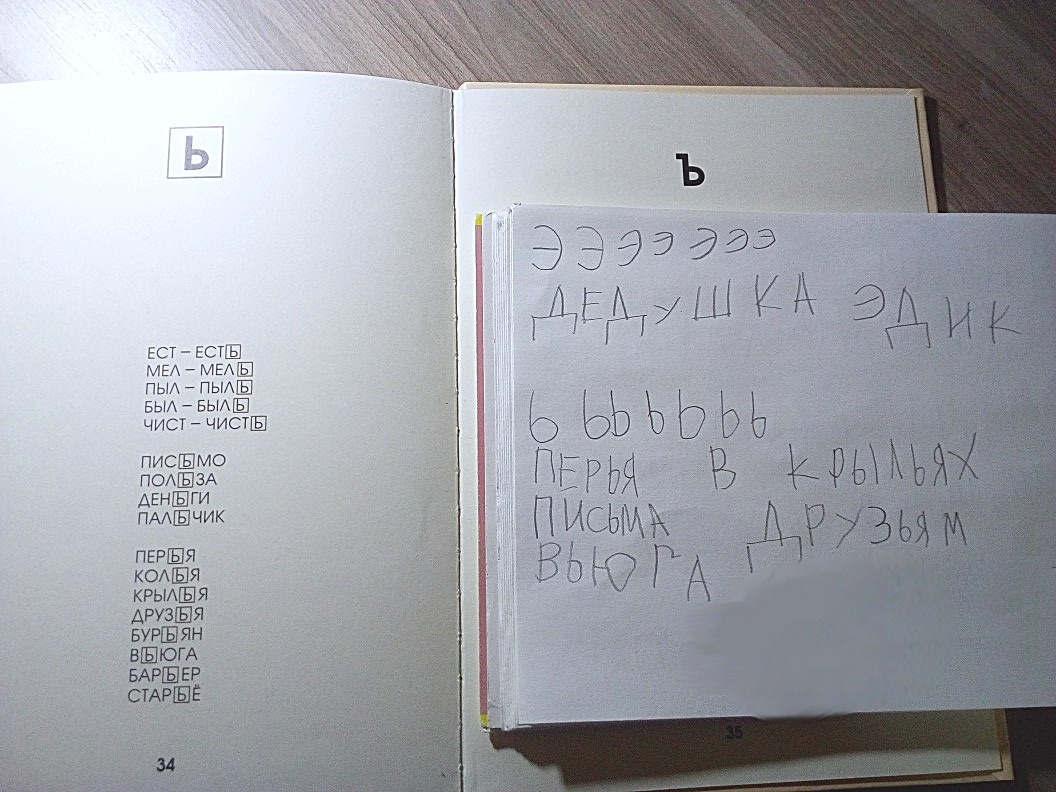 Ь
ЕСТ – ЕСТЬ
МЕЛ – МЕЛЬ
ПЫЛ – ПЫЛЬ
БЫЛ – БЫЛЬ
ЧИСТ – ЧИСТЬ
ПИСЬМО
ПОЛЬЗА
ДЕНЬГИ
ПАЛЬЧИК
ПЕРЬЯ
КОЛЬЯ
КРЫЛЬЯ
ДРУЗЬЯ
БУРЬЯН
ВЬЮГА
БАРЬЕР
СТАРЬЁ
34
Ъ
Э Э Э Э Э Э Э
ДЕДУШКА ЭДИК
Ь Ь Ь Ь Ь Ь Ь
ПЕРЬЯ В КРЫЛЬЯХ
ПИСЬМА ДРУЗЬЯМ
ВЬЮГА
35